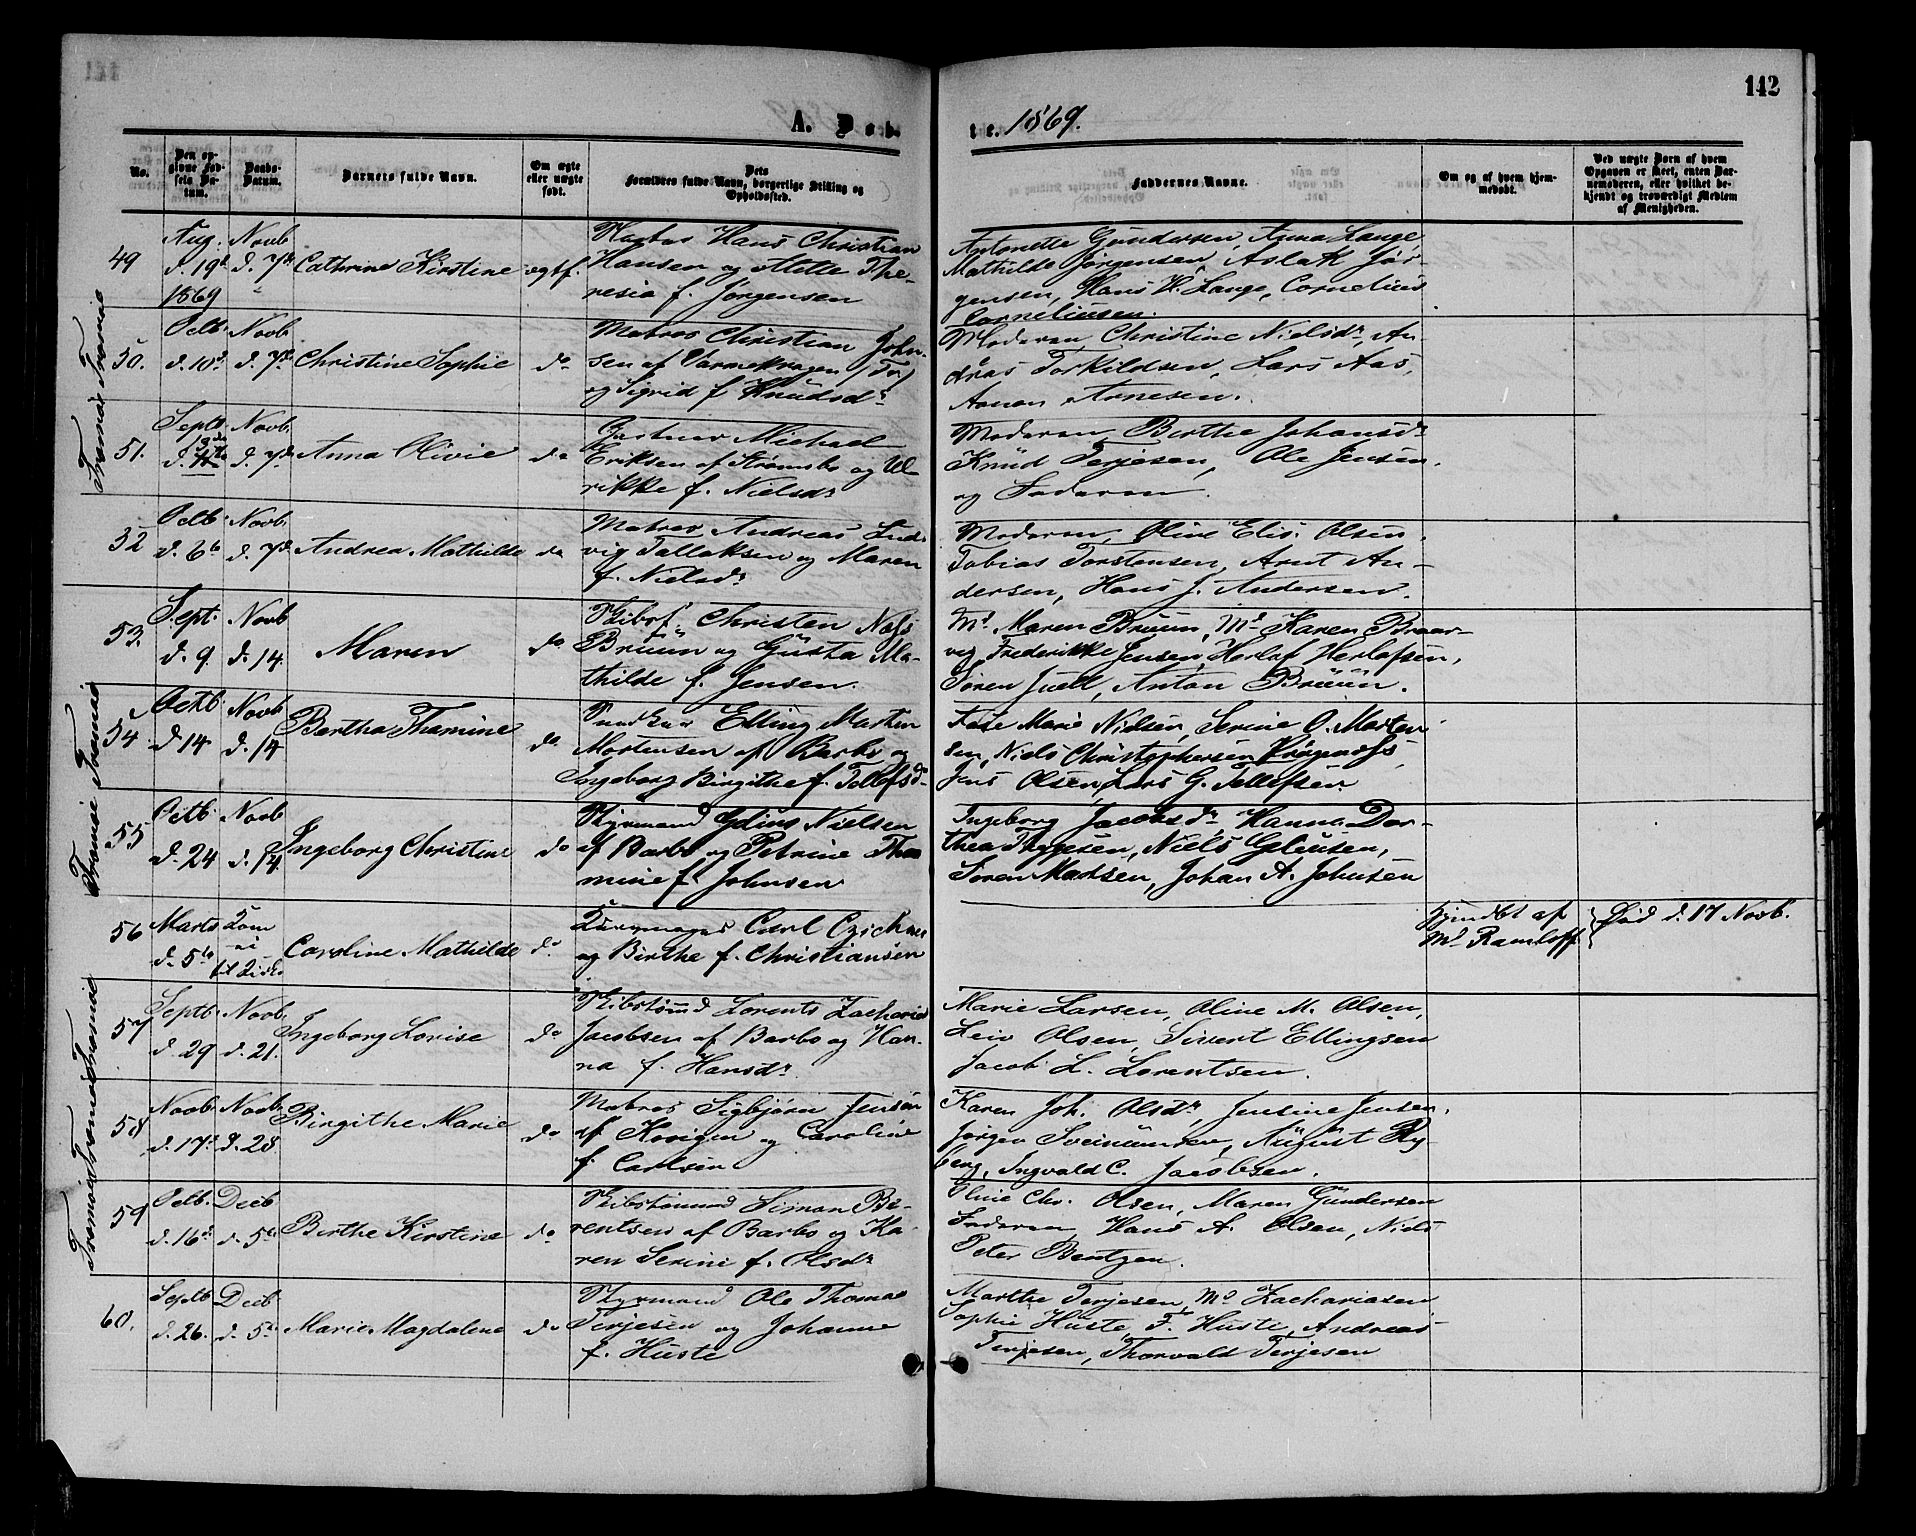 142
A. Døbte. 1869.
No.
Den opgivne Fødsels Datum.
Daabs-Datum.
Barnets fulde Navn.
Om ægte eller uægte født.
Dets Forældres fulde Navn, borgerlige Stilling og Opholdssted.
Faddernes Navne.
Om og af hvem hjemmedøbt.
Ved uægte Børn af hvem Opgaven er skeet, enten Barnemoderen, eller hvilket bekjendt og troværdigt Medlem af Menigheden.
49
Aug. d. 19d 1869
Novb d. 7de
Cathrine Kirstine
egtf.
Hans Christian
Hansen og Mette The-
resia f. Jørgensen
Antonette Gundersen, Anna Lange,
Mathilde Jørgensen, Aslak Jør-
gensen, Hans H. Lange, Cornelius
Corneliusen.
Tromøe Tromøe
50.
Octb. d. 10de
Novb. d. 7de
Christine Sophie
do
Matros Christian John-
sen af
og Sigrid f. Knudsdr
Moderen Christine Nielsdr, An-
dreas Torkildsen, Lars Aas,
Aanon Arnesen.
51.
Septb.
Novb. d. 7de
Anna Olivie
do
Gartner Michael
Eriksen af Strømsbo og Ul-
rikke f. Nielsdr
Moderen, Birthe Johansdr
Knud Terjesen, Ole Jensen,
og Faderen.
52
Octb. d. 6te
Novb. d. 7de
Andrea Mathilde
do
Matros Andreas Lud-
vig Tallaksen og Maren
f. Nielsdr
Moderen, Oline Elis. Olsen,
Tobias Torstensen, Arnt An-
dersen, Hans J. Andersen.
53.
Sept. d. 9.
Novb d. 14.
Maren
do
Skibsf. Christen Næss
Bruun og Gusta Ma-
thilde f. Jensen.
Md. Maren Bruun, Md Karen Braar-
vig, Frederikke Jensen, Herlof Herlofsen,
Søren Juell, Anton Bruun.
Tromøe Tromøe
54.
Octb d. 14
Novb d. 14.
Bertha Thomine
do.
Elling Martin
Mortensen af Barbo og
Ingeborg Birgithe f. Tellefsdr
Marie Nielsen, Serine O. Morten-
sen, Niels Christophersen
Jens Olsen, Lars G. Tellefsen
55
Octb. d. 24
Novb d. 14.
Ingeborg Christine
do
Styrmand Gelius Nielsen
af Barbo og Petrine Tho-
mine f. Johnsen
Ingeborg Jacobsdr, Hanna Dor-
thea Terjesen, Niels Geliusen,
Søren Madsen, Johan A. Johnsen
56
Marts d. 5te
Kom ei til Kirke
Caroline Mathilde
do.
Carl
og Birthe f. Christiansen
Hjmdbt af
Md Ramloff
Død d. 17 Novb.
57
Septb. d. 29
Novb. d. 21.
Ingeborg Lovise
do
Skibstømmd Lorents Zacharias
Jacobsen af Barbo og Han-
na f. Hansdr
Marie Larsen, Oline M. Olsen,
Olsen, Sivert Ellingsen
Jacob L. Lorentsen.
Tromøe Tromøe Tromøe
58
Novb. d. 17de
Novb. d. 28
Birgithe Marie
do
Matros Sigbjørn Jensen
af Kovigen og Caroline
f. Carlsen
Karen Joh. Olsdr, Jensine Jensen,
Jørgen August Ry-
berg, Ingvald C. Jacobsen.
59
Octb. d. 16de
Decb d. 5te
Birthe Kirstine
do
Skibstømmd Simon Be-
rentsen af Barbo og Ka-
ren Serine f. Olsdr
Oline Chr. Olsen, Maren Gundersen
Faderen, Hans A. Olsen, Niels
Peter Bentzen.
60.
Septb d. 26.
Decb d. 5te
Marie Magdalene
do
Styrmand Ole Thomas
Terjesen og Johanne
f. Huste
Marthe Terjesen, Md Zachariasen
Sophie Huste, T. Huste, Andreas
Terjesen, Thorvald Terjesen